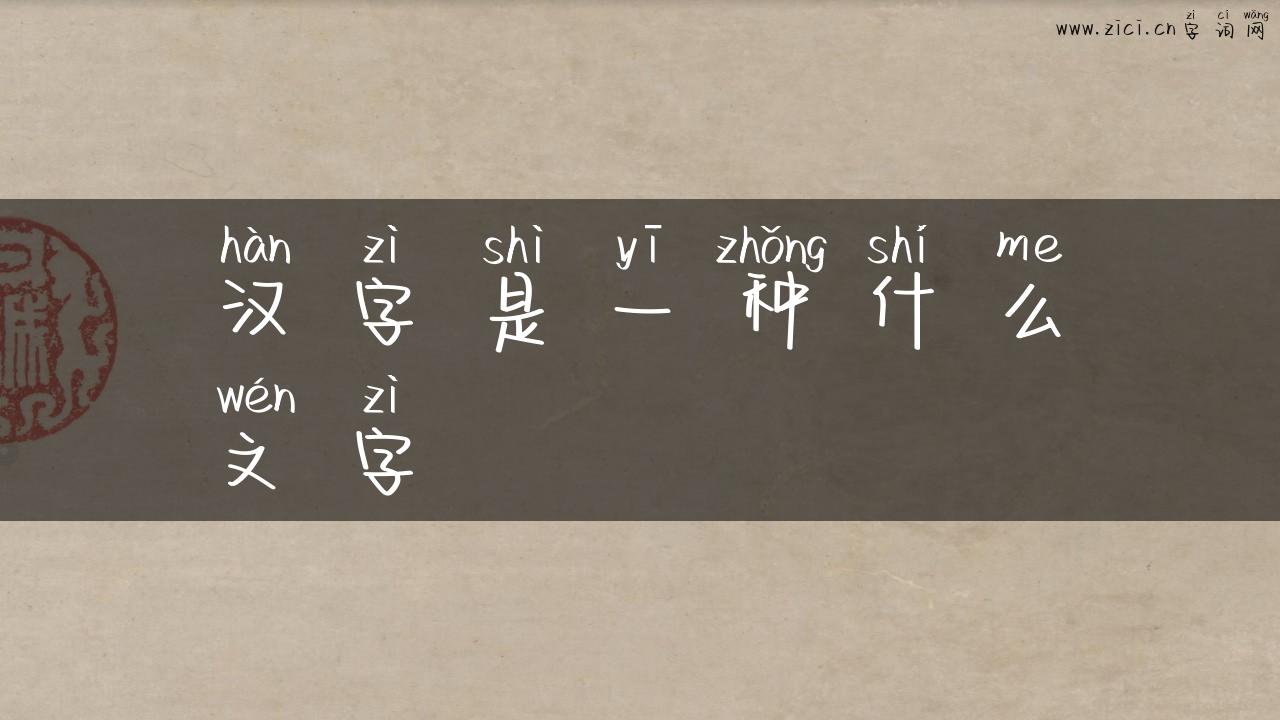 zì cí wǎng
www.zici.cn 字词网
hàn zì shì yī zhǒng shí me
汉字是一种什么
wén zì
文字